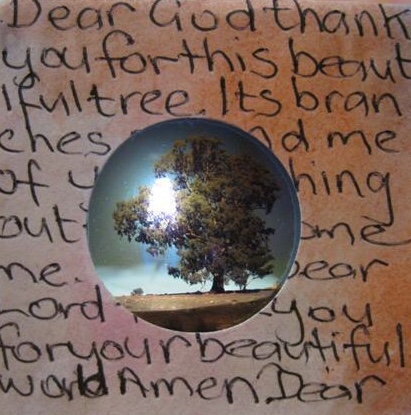 Dear God thank
you for this beaut
iful tree. Its bran
ches me
of
out
me. Dear
Lord you
for your beautiful
world Amen Dear